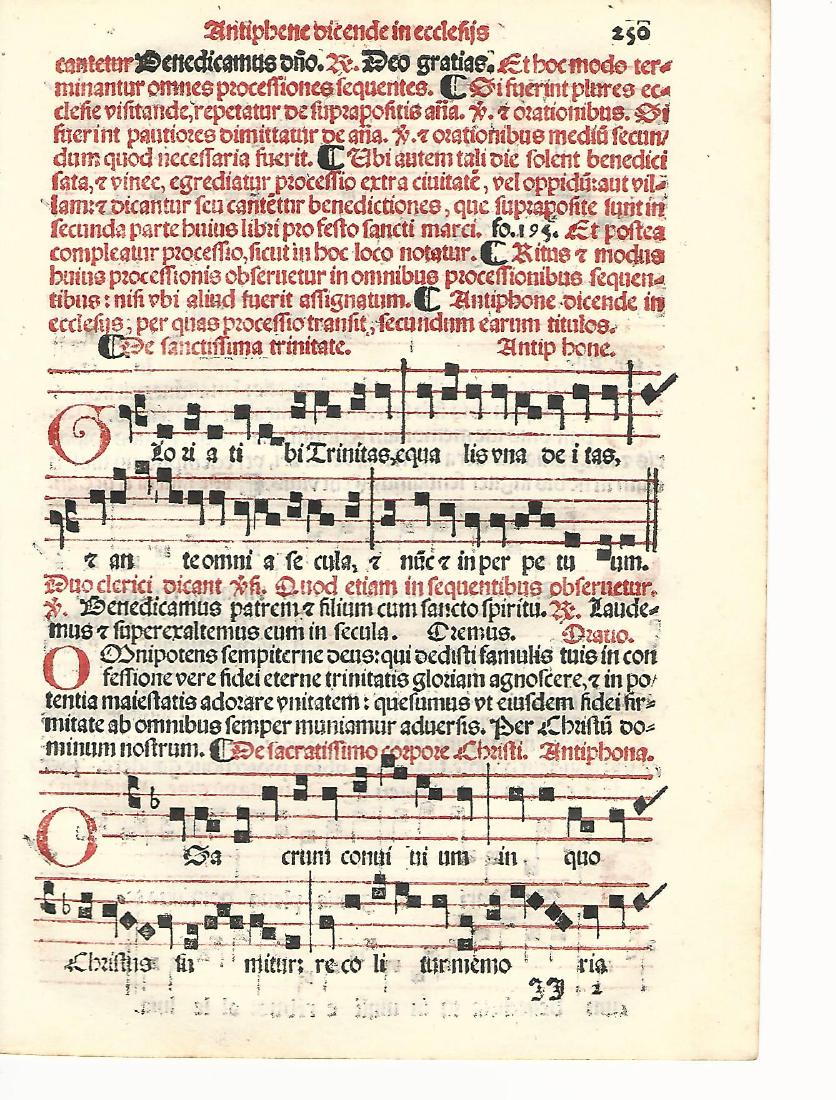 Antiphene dicende in ecclesijs 250
cantetur Benedicamus dño. ℟. Deo gratias. Et hoc modo ter⸗
minantur omnes processiones sequentes. ¶ Si fuerint plures ec⸗
clesie visitande, repetatur de suprapositis aña. ℣. ⁊ orationibus. Si
fuerint pautiores dimittatur de aña. ℣. ⁊ orationibus mediũ secun/
dum quod necessaria fuerit. ¶ Ubi autem tali die solent benedici
sata, ⁊ vinee, egrediatur processio extra ciuitatẽ, vel oppidũ: aut vil⸗
lam: ⁊ dicantur seu cañtẽtur benedictiones, que supraposite sunt in
secunda parte huius libri pro festo sancti marci. fo. 195. Et postea
compleatur processio, sicut in hoc loco notatur. ¶ Ritus ⁊ modus
huius processionis obseruetur in omnibus processionibus sequen⸗
tibus: nisi vbi aliud fuerit assignatum. ¶ Antiphone dicende in
ecclesijs, per quas processio transit, secundum earum titulos.
¶ De sanctissima trinitate. Antip hone.
G lo ri a ti bi Trinitas, equa lis vna de i tas,
⁊ an te omni a se cula, ⁊ nũc ⁊ in per pe tu um.
Duo clerici dicant ℣ſ. Quod etiam in sequentibus obseruetur.
℣. Benedicamus patrem ⁊ filium cum sancto spiritu. ℟. Laude⸗
mus ⁊ superexaltemus eum in secula. Oremus. Oratio.
O Mnipotens sempiterne deus: qui dedisti famulis tuis in con
fessione vere fidei eterne trinitatis gloriam agnoscere, ⁊ in po/
tentia maiestatis adorare vnitatem: quesumus vt eiusdem fidei fir⸗
mitate ab omnibus semper muniamur aduersis. Per Christũ do⸗
minum nostrum. ¶ De sacratissimo corpore Christi. Antiphona.
O Sa crum conui ui um in quo
Christus su mitur: re co li tur memo ria
JJ 2